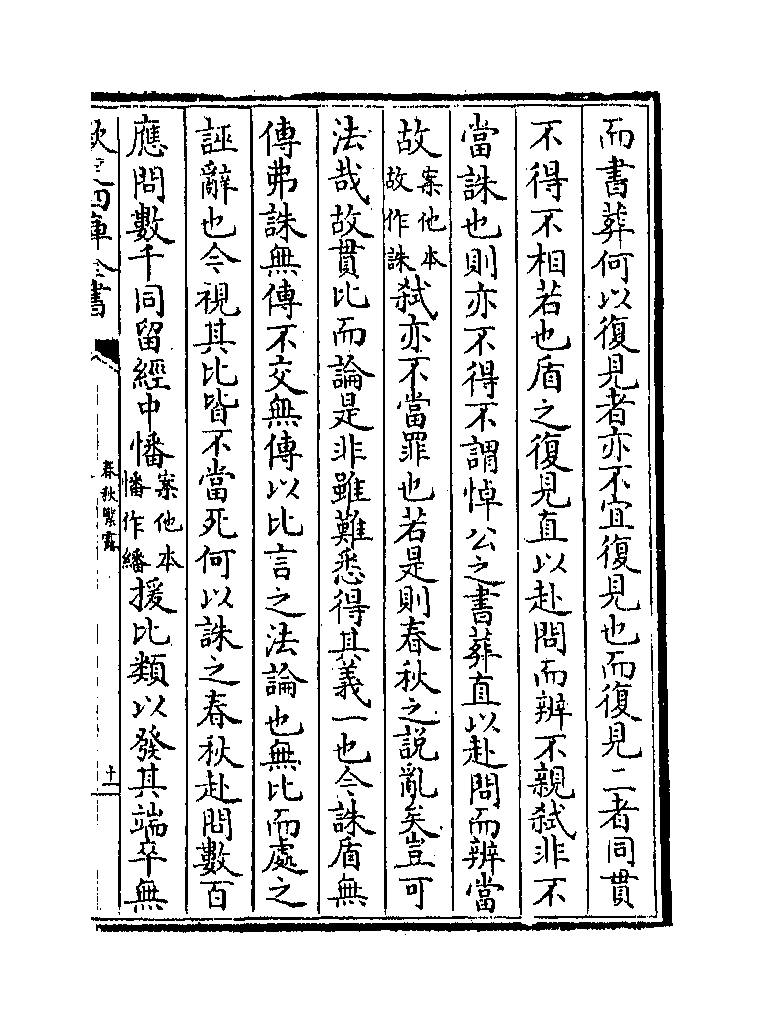 而書葬何以復見者亦不宜復見也而復見二者同貫
不得不相若也盾之復見直以赴問而辨不親弑非不
當誅也則亦不得不謂悼公之書葬直以赴問而辨當
故案他本故作誅弑亦不當罪也若是則春秋之說亂矣豈可
法哉故貫比而論是非雖難悉得其義一也今誅盾無
傳弗誅無傳不交無傳以比言之法論也無比而處之
誣辭也今視其比皆不當死何以誅之春秋赴問數百
應問數千同留經中幡案他本幡作繙援比類以發其端卒無
欽定四庫全書
春秋繁露
十一